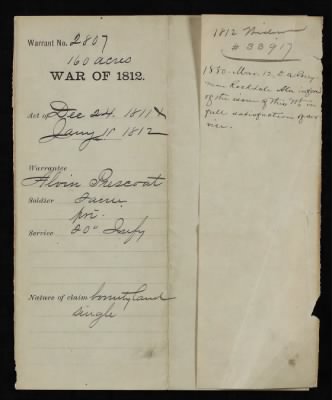 Warrant No. 2807
160 acres
WAR OF 1812.
Act of Dec 24, 1811 &
Jany 11 1812
Warrantee
Alvin Prescoat
Soldier Same
pri.
Service 20" Infy
Nature of claim bounty land
single
1812
# 33917
1880-Mar. 12,
Rockdale
of the issue of this Wt. in
full satisfaction of ser
vice.